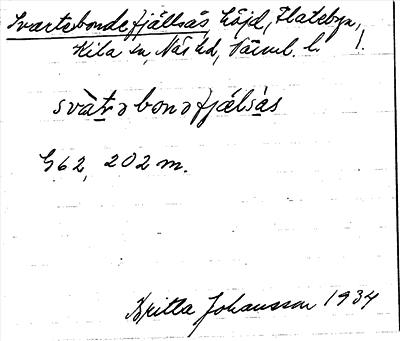 Svartebondefjällsås, höjd, Flatebyn,
Kila sn, Näs hd, Värml. l. 1.
svàtəbonəfjǽlsàs
G62, 202 m.
Britta Johansson 1934